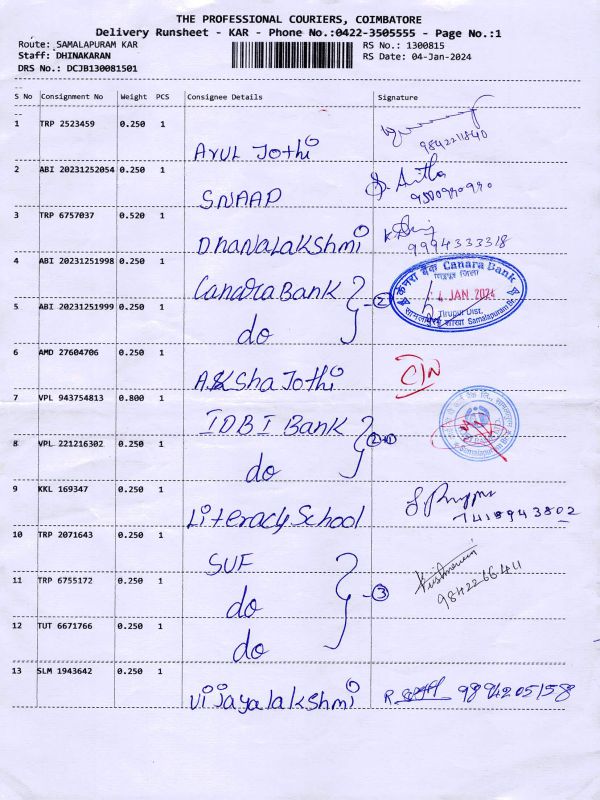 THE PROFESSIONAL COURIERS, COIMBATORE
Delivery Runsheet - KAR - Phone No.:0422-3505555 - Page No.:1
Route: SAMALAPURAM KAR RS No.: 1300815
Staff: DHINAKARAN RS Date: 04-Jan-2024
DRS No.: DCJB130081501
S No Consignment No Weight PCS Consignee Details Signature
1 TRP 2523459 0.250 1
Arul Jothi 9842211840
2 ABI 20231252054 0.250 1
SNAAP
3 TRP 6757037 0.520 1
Dhanalakshmi 9994333318
4 ABI 20231251998 0.250 1
Canara Bank ② केनरा बैंक Canara Bank
4 JAN 2024
Tirupur Dist.
Samalapuram Br.
5 ABI 20231251999 0.250 1
do
6 AMD 27604706 0.250 1
Aksha Jothi
7 VPL 943754813 0.800 1
IDBI Bank
8 VPL 221216302 0.250 1
do
9 KKL 169347 0.250 1
Literacy School 7418943802
10 TRP 2071643 0.250 1
SUF
11 TRP 6755172 0.250 1
do ③
12 TUT 6671766 0.250 1
do
13 SLM 1943642 0.250 1
Vijayalakshmi